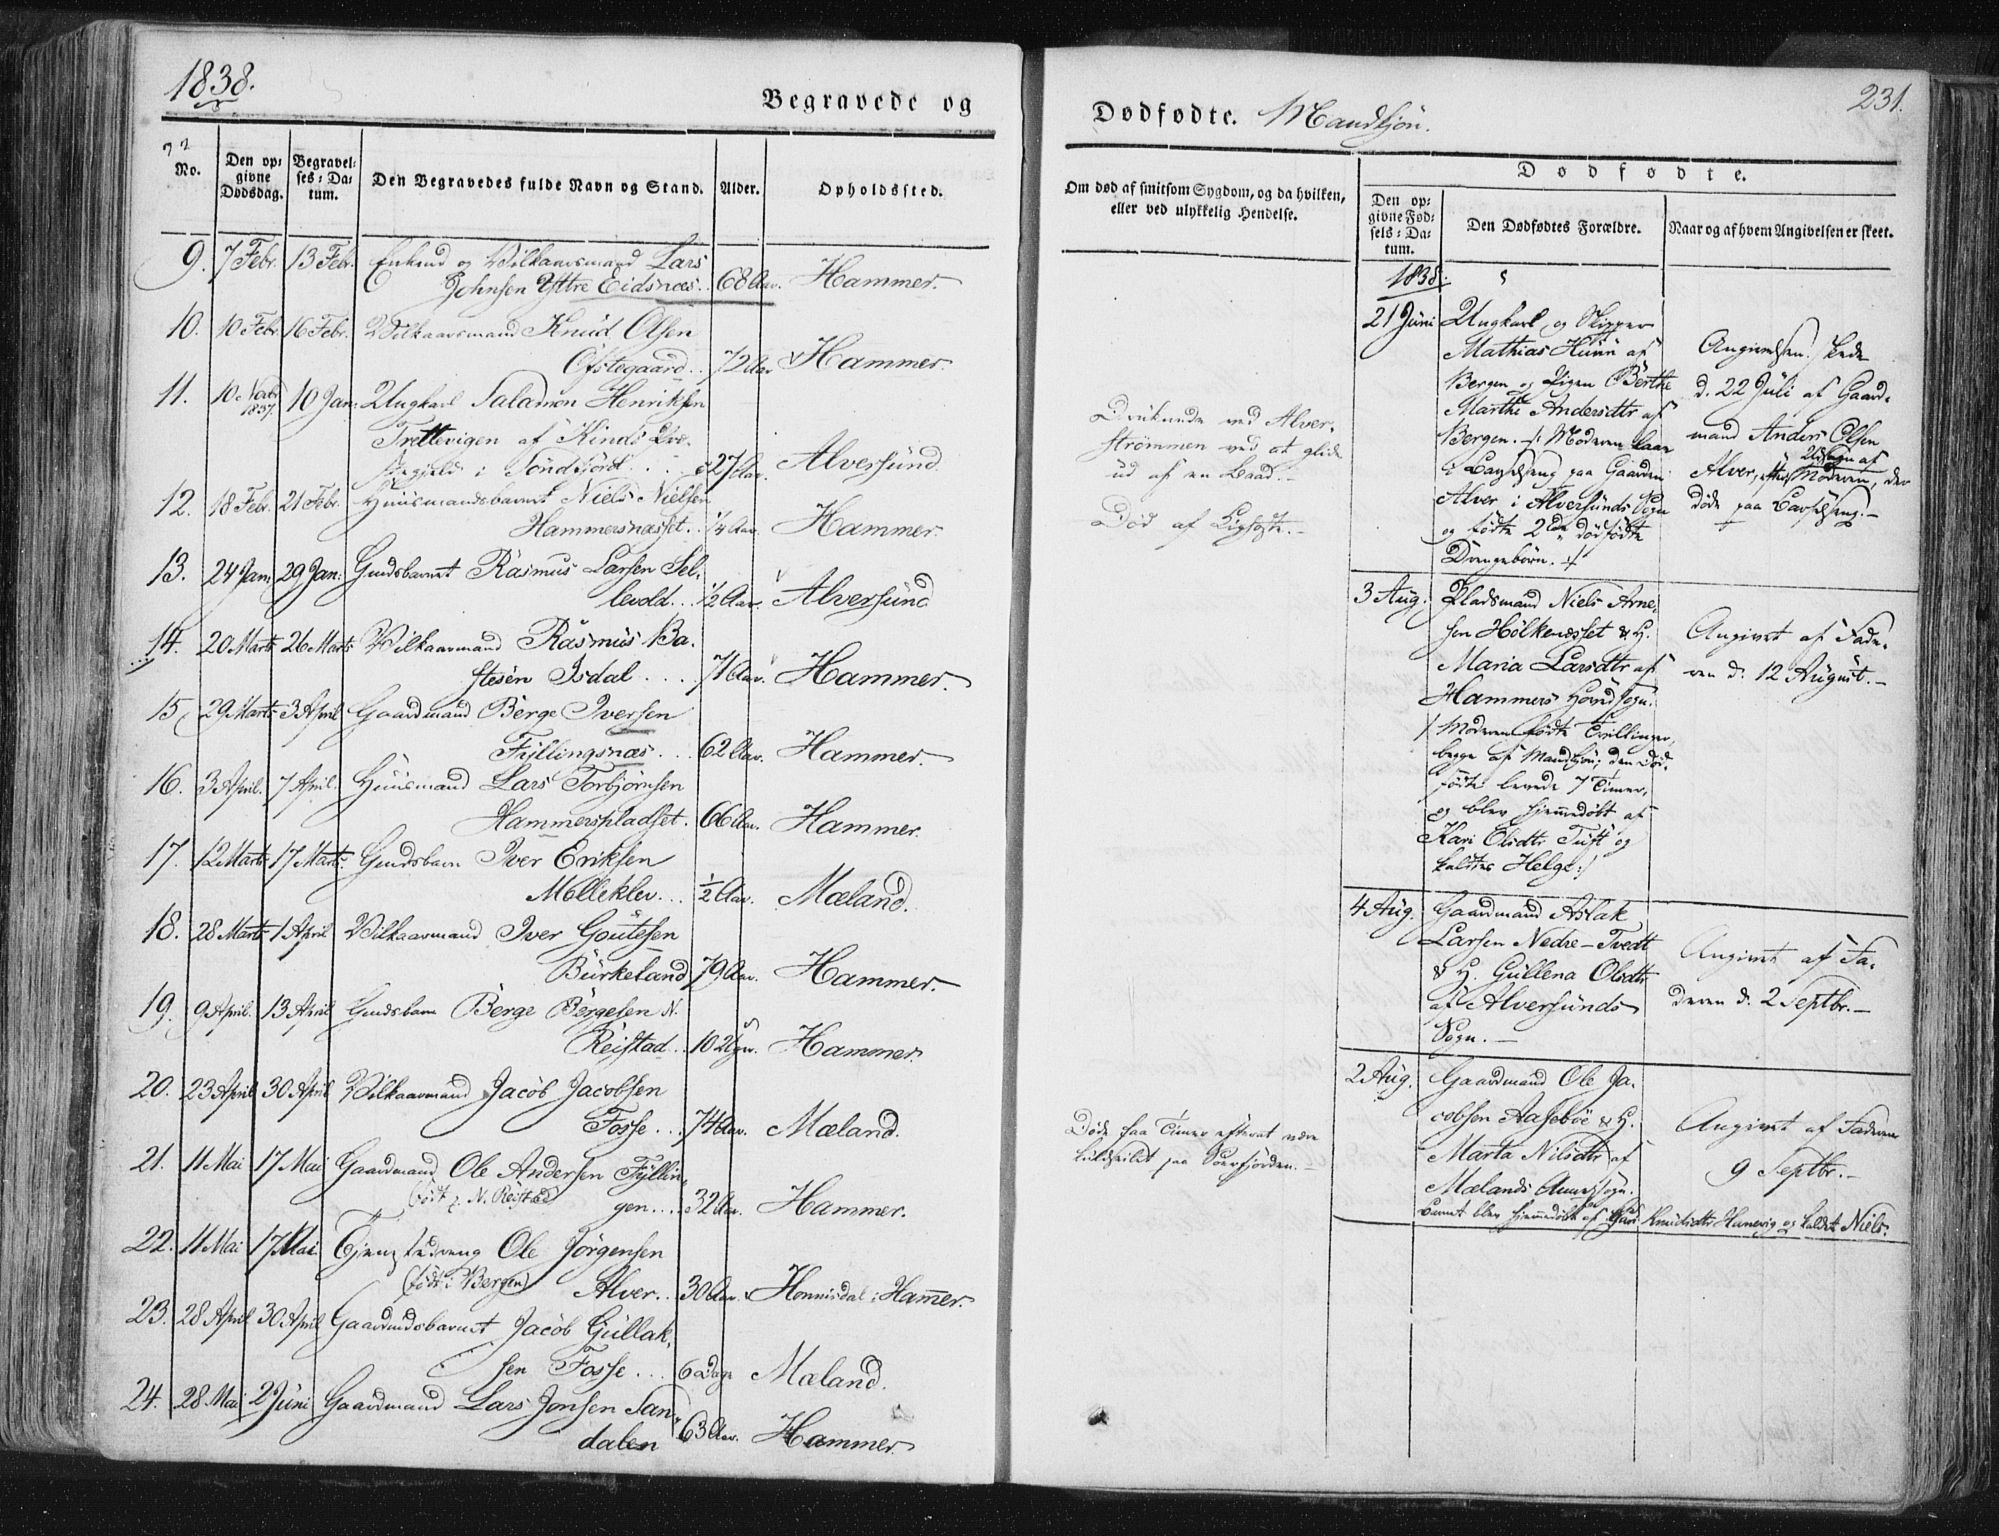 1838.
Begravede og
No.
Den op=
givne
Dødsdag.
Begravel=
ses=Da=
tum.
Den Begravedes fulde Navn og Stand.
Alder.
Opholdssted.
9. 7 Febr. 13 Febr. Enkemd og Vilkaarsmand Lars
Johnsen Yttre Eidsnæs.. 68 Aar. Hammer.
10. 10 Febr 16 Febr. Vilkaarsmand Knud Olsen
Ofstegaard.. 72 Aar Hammer.
11. 10 Novbr 1837. 10 Jan: Ungkarl Salamon Henriksen
Trettevigen af Kinds Præ-
stegjeld i Søndfjord.... 27 Aar. Alversund.
12. 18 Febr. 21 Febr. Huusmandsbarnet Niels Nielsen
Hammersnæsset.. 1/4 Aar. Hammer.
13. 24 Jan. 29 Jan. Gmdsbarnet Rasmus Larsen Sel-
levold... 1/2 Aar. Alversund
14. 20 Marts 26 Marts Vilkaarmand Rasmus Ba-
stesen Isdal.... 71 Aar. Hammer.
15. 29 Marts 3 April Gaardmand Børge Iversen
Fyllingsnæs... 62 Aar. Hammer.
16. 3 April. 7 April. Huusmand Lars Torbjørnsen
Hammerspladset. 66 Aar. Hammer.
17. 12 Marts 17 Marts. Gmdsbarn Iver Eriksen
Molleklev... 1/2 Aar. Mæland.
18. 28 Marts 1 April Vilkaarmand Iver Goutesen
Burkeland 79 Aar. Hammer.
19. 9 April. 13 April Gmdsbarn Børge Børgesen N.
Reistad.. 10 Uger. Hammer.
20. 23 April 30 April Vilkaarmand Jacob Jacobsen
Fosse... 74 Aar. Mæland.
21. 11 Mai 17 Mai Gaardmand Ole Andersen Fyllin-
(født p. N. Reistad) gen... 32 Aar. Hammer.
22. 11 Mai 17 Mai Tjenestedreng Ole Jørgensen
(født i Bergen) Alver.. 30 Aar. Honnisdal i Hammer.
23. 28 April 30 April Gaardmdsbarnet Jacob Gullak-
sen Fosse... 6 Dage Mæland.
24. 28 Mai 2 Juni Gaardmand Lars Jonsen San-
dalen 63 Aar. Hammer.
Dødfødte. Mandkjøn.
231.
Om død af smitsom Sygdom, og da hvilken,
eller ved ulykkelig Hendelse.
Dødfødte.
Den op=
givne Fød=
sels=Da=
tum.
Den Dødfødtes Forældre.
Naar og af hvem Angivelsen er skeet.
Druknede ved Alver-
strømmen ved at glide
ud af en Baad.-
Død af Ligsott.-
Døde faa Timer efterat være
kuldseilet paa Sørfjorden.-
1838.
21 Juni Ungkarl og Skipper
Mathias Huun af
Bergen og Pigen Berthe
Marthe Andersdtr af
Bergen. /: Moderen laae
i Barselseng paa Gaarden
Alver i Alversunds Sogn
og fødte 2de dødfødte
Drengebørn. :/
Angivelsen skede
d. 22 Juli af Gaard-
mand Anders Olsen
Alver, efter Udsagn af Moderen, der
døde paa Barselseng.-
3 Aug. Pladsmand Niels Arne-
sen Holkenæsset & H.
Maria Larsdtr af
Hammers Hovedsogn.
/: Moderen fødte Tvillinger,
begge af Mandkjøn; den Død-
fødte levede 7 Timer,
og blev hjemmedøbt af
Kari Olsdtr Tuft og
kaldtes Helge:/
Angivet af Fade-
ren d. 12 August.-
4 Aug. Gaardmand Aslak
Larsen Nedre-Tvedt
& H. Gullena Olsdtr
af Alversunds
Sogn.-
Angivet af Fa-
deren d. 2 Septbr.-
2 Aug. Gaardmand Ole Ja-
cobsen Aasebøe & H.
Marta Nilsdtr af
Mælands Annexsogn.
Barnet blev hjemmedøbt af Guri Knudsdtr Hanevig og kaldet Niels.
Angivet af Faderen
9 Septbr.-